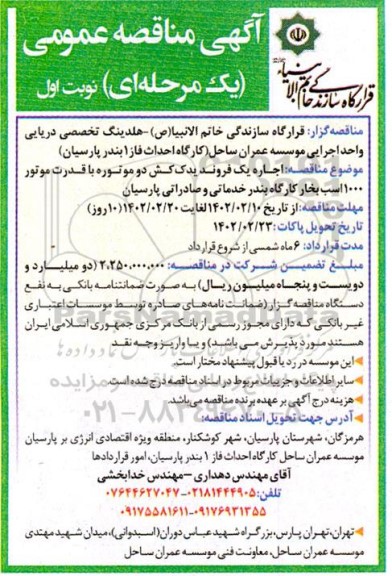 آگهی مناقصه عمومی
(یک مرحله‌ای) نوبت اول
قرارگاه سازندگی خاتم الانبیاء
مناقصه‌گزار: قرارگاه سازندگی خاتم الانبیا(ص) -هلدینگ تخصصی دریایی
واحد اجرایی موسسه عمران ساحل(کارگاه احداث فاز۱ بندر پارسیان)
موضوع مناقصه: اجاره یک فروند یدک‌کش دو موتوره با قدرت موتور
۱۰۰۰اسب بخار کارگاه بندر خدماتی و صادراتی پارسیان
مهلت مناقصه: از تاریخ ۱۴۰۲/۰۲/۱۰ لغایت ۱۴۰۲/۰۲/۲۰(۱۰روز)
تاریخ تحویل پاکات: ۱۴۰۲/۰۲/۲۳
مدت قرارداد: ۶ماه شمسی از شروع قرارداد
مبلغ تضمین شرکت در مناقصه: ۲،۲۵۰،۰۰۰،۰۰۰ (دو میلیارد و
دویست و پنجاه میلیون ریال) به صورت ضمانتنامه بانکی به نفع
دستگاه مناقصه گزار (ضمانت نامه‌های صادره توسط موسسات اعتباری
غیر بانکی که دارای مجوز رسمی از بانک مرکزی جمهوری اسلامی ایران
هستند مورد پذیرش می باشد) و یا واریز وجه نقد
این موسسه در رد یا قبول پیشنهاد مختار است.
سایر اطلاعات و جزییات مربوط در اسناد مناقصه درج شده است.
هزینه درج آگهی بر عهده برنده مناقصه می‌باشد.
آدرس جهت تحویل اسناد مناقصه:
هرمزگان، شهرستان پارسیان، شهر کوشکنار، منطقه ویژه اقتصادی انرژی بر پارسیان
موسسه عمران ساحل کارگاه احداث فاز ۱ بندر پارسیان، امور قراردادها
آقای مهندس دهداری -مهندس خدابخشی
تلفن: ۰۲۱۸۱۴۴۴۹۰۵-۰۷۶۴۴۶۲۷۰۴۷
۰۹۱۷۶۹۳۱۳۵۵-۰۹۱۷۵۵۸۱۶۱۱
تهران، تهران پارس، بزرگراه شهید عباس دوران(اسبدوانی)، میدان شهید مهتدی
موسسه عمران ساحل، معاونت فنی موسسه عمران ساحل